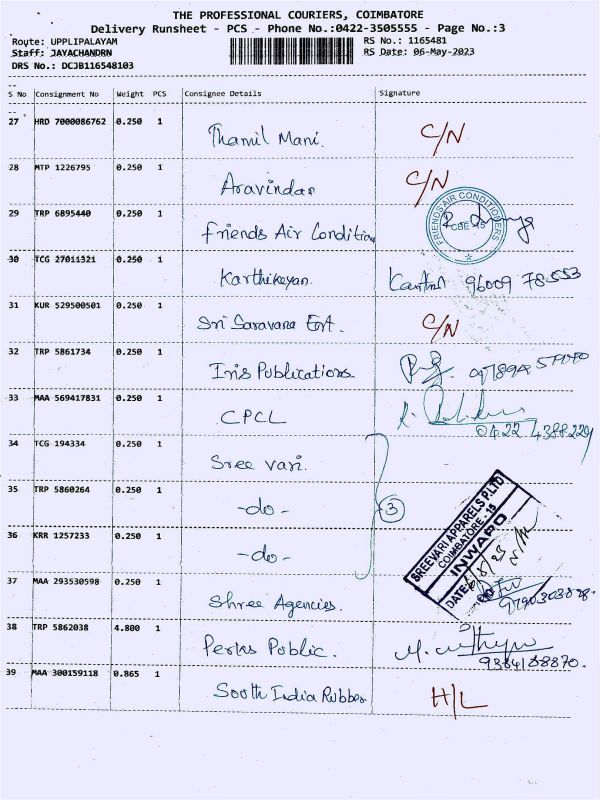 THE PROFESSIONAL COURIERS, COIMBATORE
Delivery Runsheet - PCS - Phone No.:0422-3505555 - Page No.:3
Route: UPPLIPALAYAM RS No.: 1165481
Staff: JAYACHANDRN RS Date: 06-May-2023
DRS No.: DCJB116548103
S No Consignment No Weight PCS Consignee Details Signature
27 HRD 7000086762 0.250 1 Thamil Mani. C/N
28 MTP 1226795 0.250 1 Aravindan C/N
29 TRP 6895440 0.250 1 Friends Air Condition
FRIENDS AIR CONDITIONERS
CBE - 15
30 TCG 27011321 0.250 1 Karthikeyan. 96009 78553
31 KUR 529500501 0.250 1 Sri Saravana Ent. C/N
32 TRP 5861734 0.250 1 Iris Publications
33 MAA 569417831 0.250 1 CPCL
0422 4388229
34 TCG 194334 0.250 1 Sree vari.
35 TRP 5860264 0.250 1 -do- 3
36 KRR 1257233 0.250 1 -do-
SREEVARI APPARELS P.LTD
COIMBATORE - 15
INWARD
DATE:
37 MAA 293530598 0.250 1 Shree Agencies.
38 TRP 5862038 4.800 1 Perks Public.
39 MAA 300159118 0.865 1 South India Rubber H/L